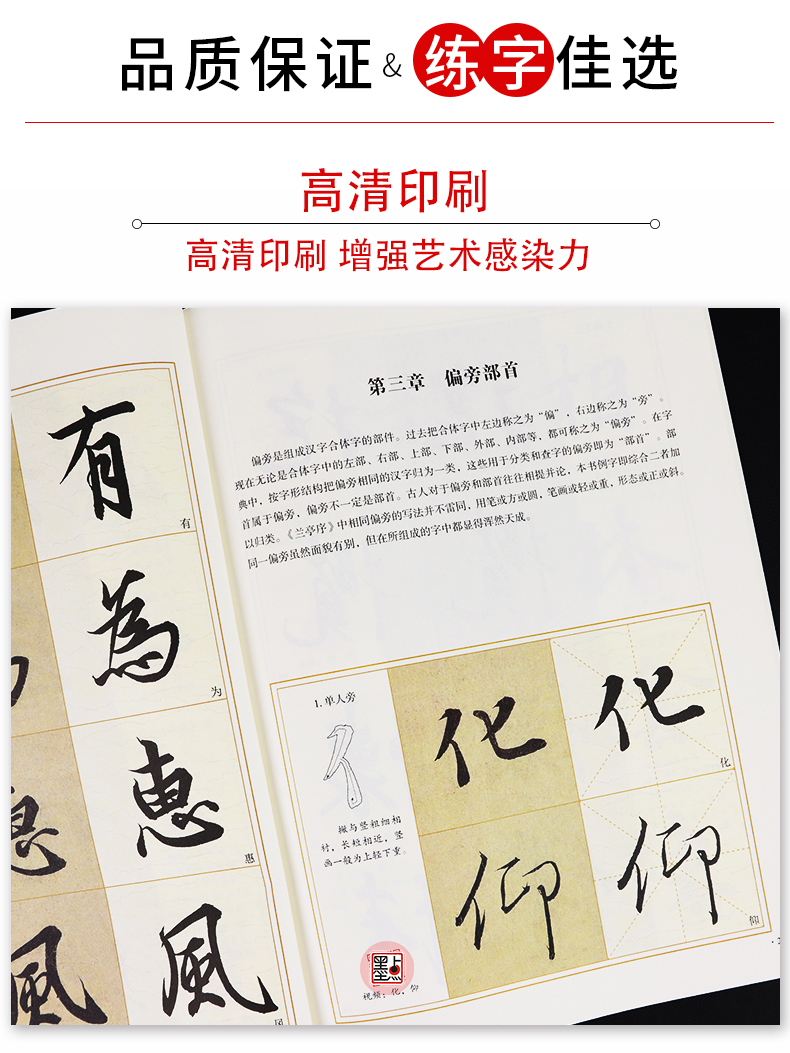 品质保证&练字佳选
高清印刷
高清印刷 增强艺术感染力
有
有
為
为
惠
惠
風
风
第三章 偏旁部首
偏旁是组成汉字合体字的部件。过去把合体字中左边称之为“偏”，右边称之为“旁”。
现在无论是合体字中的左部、右部、上部、下部、外部、内部等，都可称之为“偏旁”。在字
典中，按字形结构把偏旁相同的汉字归为一类，这些用于分类和查字的偏旁即为“部首”。部
首属于偏旁，偏旁不一定是部首。古人对于偏旁和部首往往相提并论，本书例字即综合二者加
以归类。《兰亭序》中相同偏旁的写法并不雷同，用笔或方或圆，笔画或轻或重，形态或正或斜。
同一偏旁虽然面貌有别，但在所组成的字中都显得浑然天成。
1.单人旁
亻
撇与竖粗细相
衬，长短相近，竖
画一般为上轻下重。
墨点
视频：化，仰
化 化
化
仰 仰
仰
惠
風